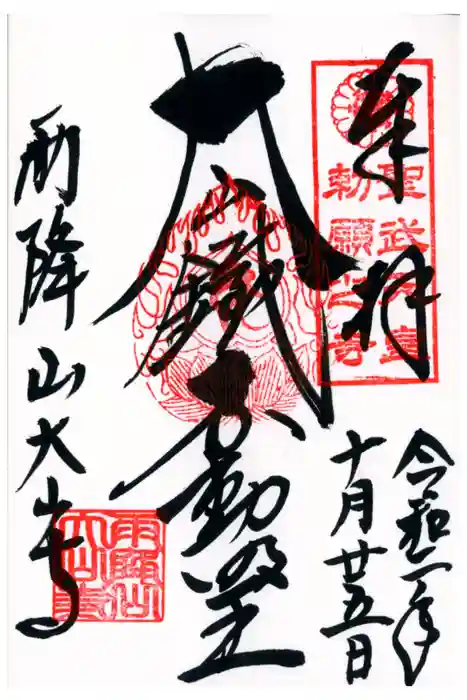 奉拝
聖武天皇
勅願之寺
令和二年
十月廿五日
大山鐵不動明王
雨降山大山寺
雨降山
大山寺